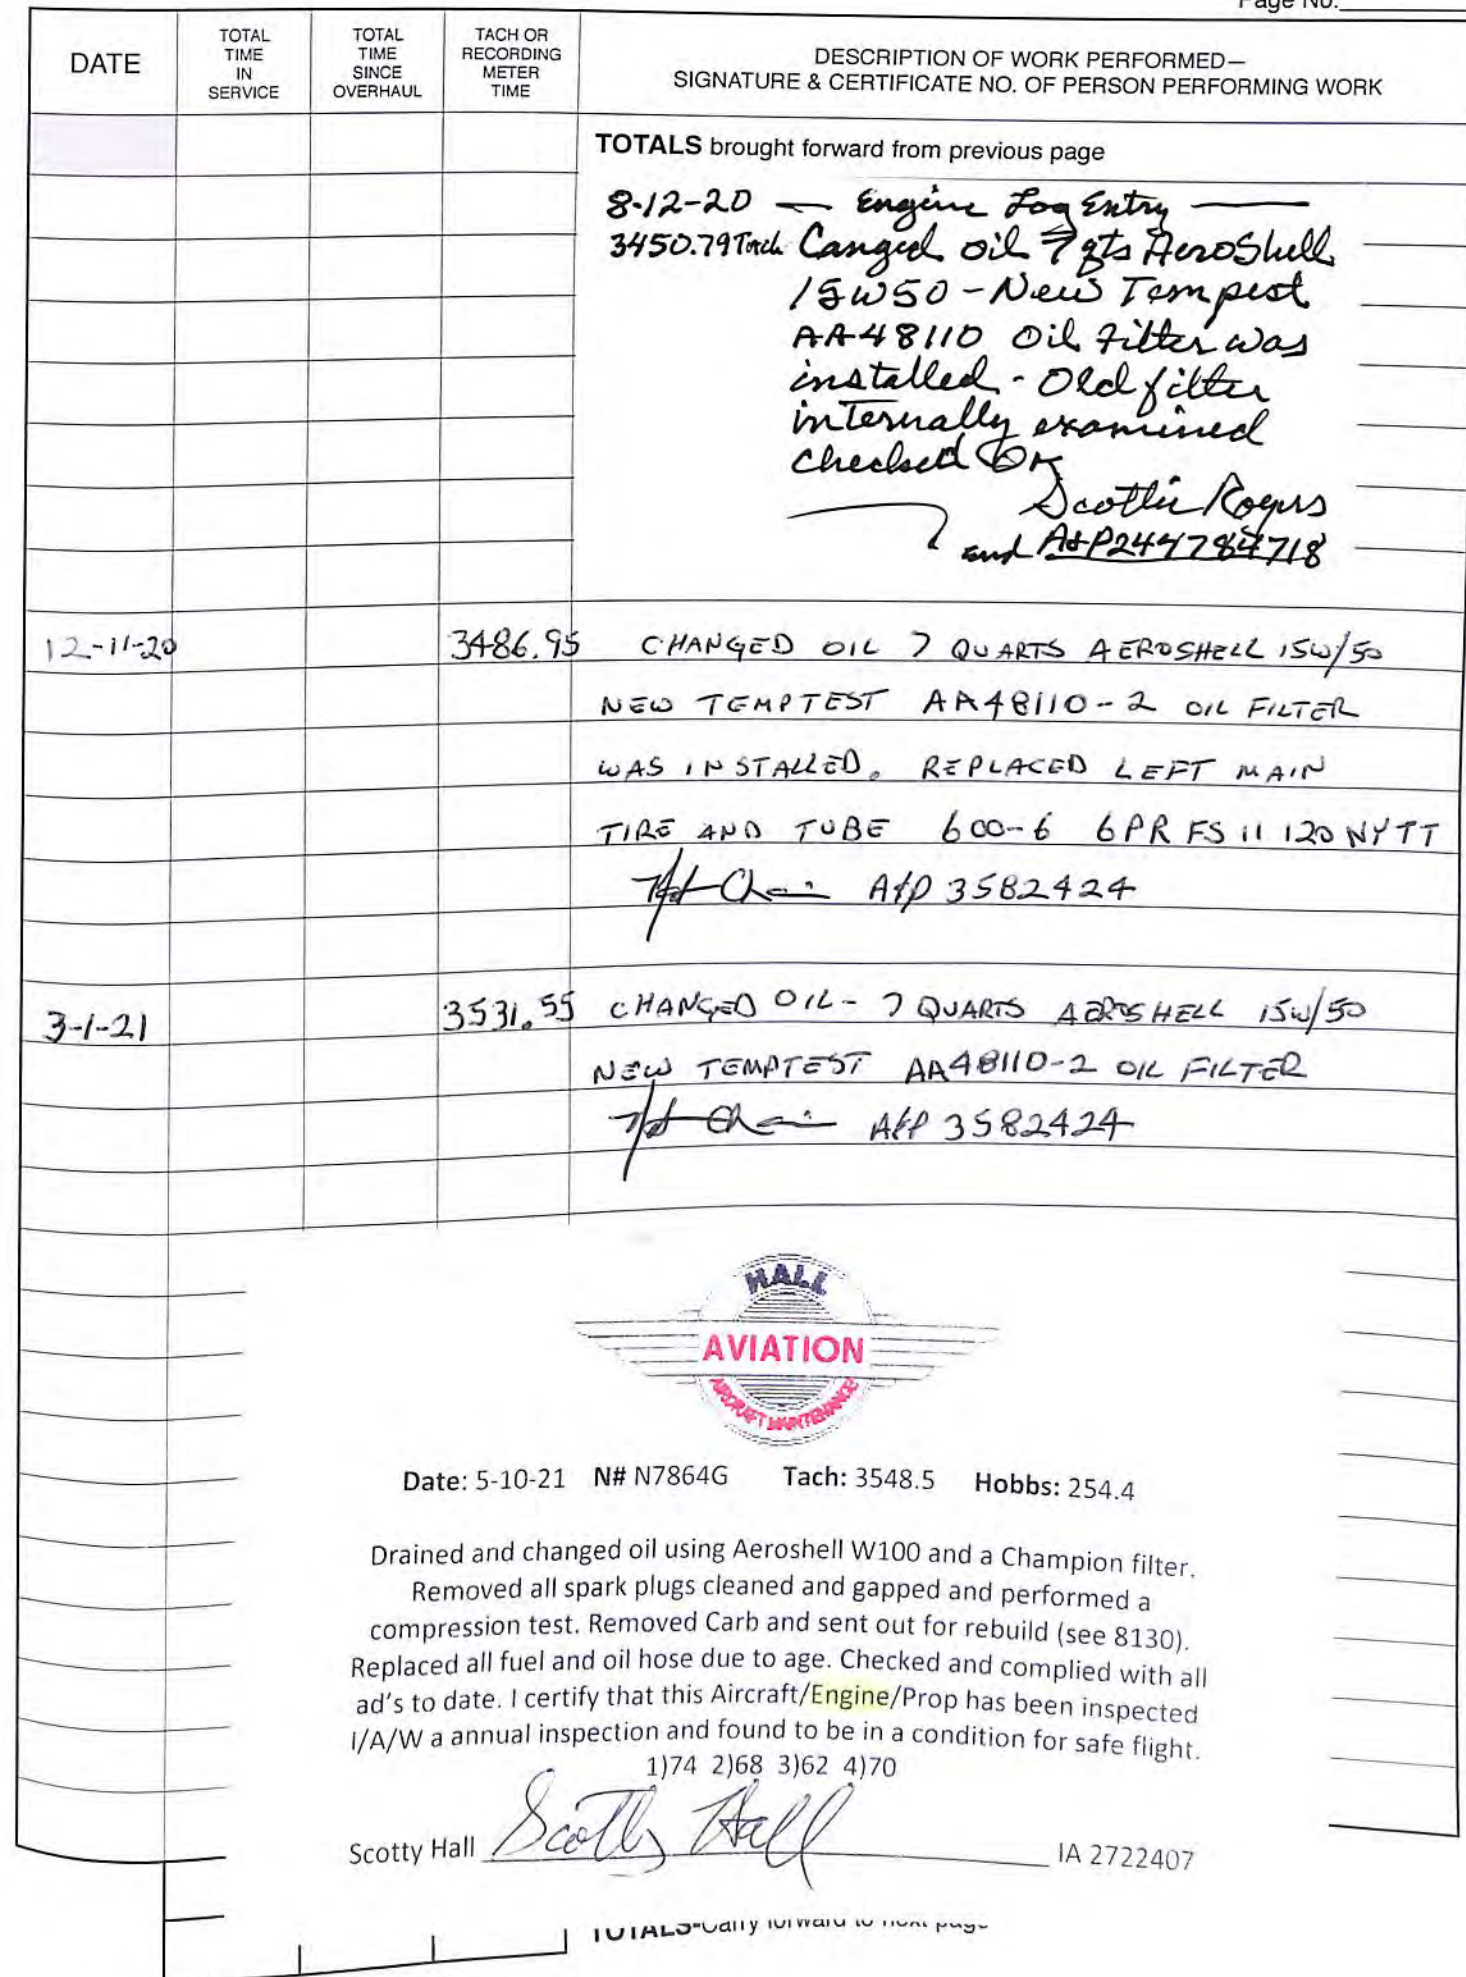 Page No.
DATE
TOTAL TIME IN SERVICE
TOTAL TIME SINCE OVERHAUL
TACH OR RECORDING METER TIME
DESCRIPTION OF WORK PERFORMED—
SIGNATURE & CERTIFICATE NO. OF PERSON PERFORMING WORK
TOTALS brought forward from previous page
8-12-20 — Engine Log Entry —
3450.79 Tach Canged oil 7 qts AeroShell
15W50 - New Tempest
AA48110 Oil Filter was
installed - Old filter
internally examined
checked OK
Scottie Rogers
end A&P244784718
12-11-20 3486.95 CHANGED OIL 7 QUARTS AEROSHELL 15W/50
NEW TEMPTEST AA48110-2 OIL FILTER
WAS INSTALLED. REPLACED LEFT MAIN
TIRE AND TUBE 600-6 6PR FS 11 120 NYTT
A&P 3582424
3-1-21 3531.55 CHANGED OIL - 7 QUARTS AEROSHELL 15W/50
NEW TEMPTEST AA48110-2 OIL FILTER
A&P 3582424
HALL
AVIATION
AIRCRAFT MAINTENANCE
Date: 5-10-21 N# N7864G Tach: 3548.5 Hobbs: 254.4
Drained and changed oil using Aeroshell W100 and a Champion filter.
Removed all spark plugs cleaned and gapped and performed a
compression test. Removed Carb and sent out for rebuild (see 8130).
Replaced all fuel and oil hose due to age. Checked and complied with all
ad's to date. I certify that this Aircraft/Engine/Prop has been inspected
I/A/W a annual inspection and found to be in a condition for safe flight.
1)74 2)68 3)62 4)70
Scotty Hall Scotty Hall IA 2722407
TOTALS-Carry forward to next page